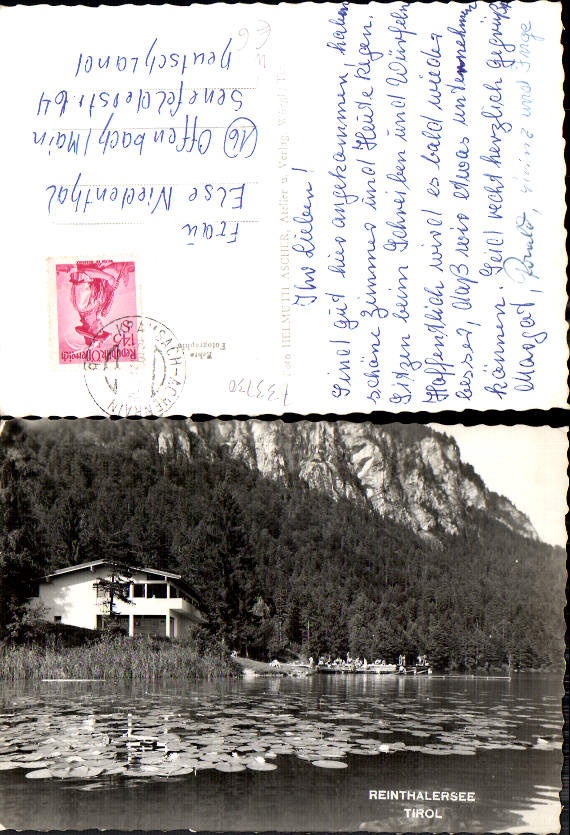 Ihr Lieben!
Sind gut hier angekommen, haben
schöne Zimmer und heute Regen.
Sitzen beim Schreiben und Würfeln
Hoffentlich wird es bald wieder
besser, daß wir etwas unternehmen
können. Seid recht herzlich gegrüßt
Margot, und Inge
Foto HELMUTH ASCHER, Atelier u. Verlag, Wörgl, Tirol
Echte
Fotographie
733730
Republik Österreich
1.45
Frau
Else Niedenthal
(16) Offenbach/Main
Senefelderstr. 64
Deutschland
€ 6
REINTHALERSEE
TIROL